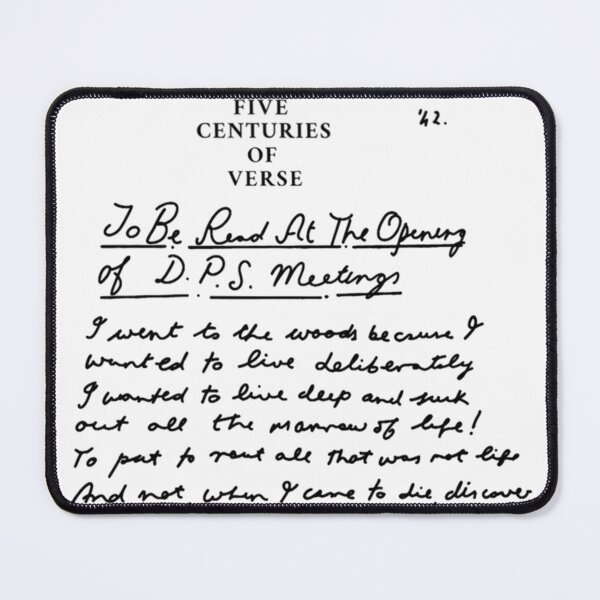 FIVE
CENTURIES
OF
VERSE
'42.
To Be Read At The Opening
of D.P.S. Meetings
I went to the woods because I
wanted to live deliberately
I wanted to live deep and suck
out all the marrow of life!
To put to rout all that was not life
And not when I came to die discover